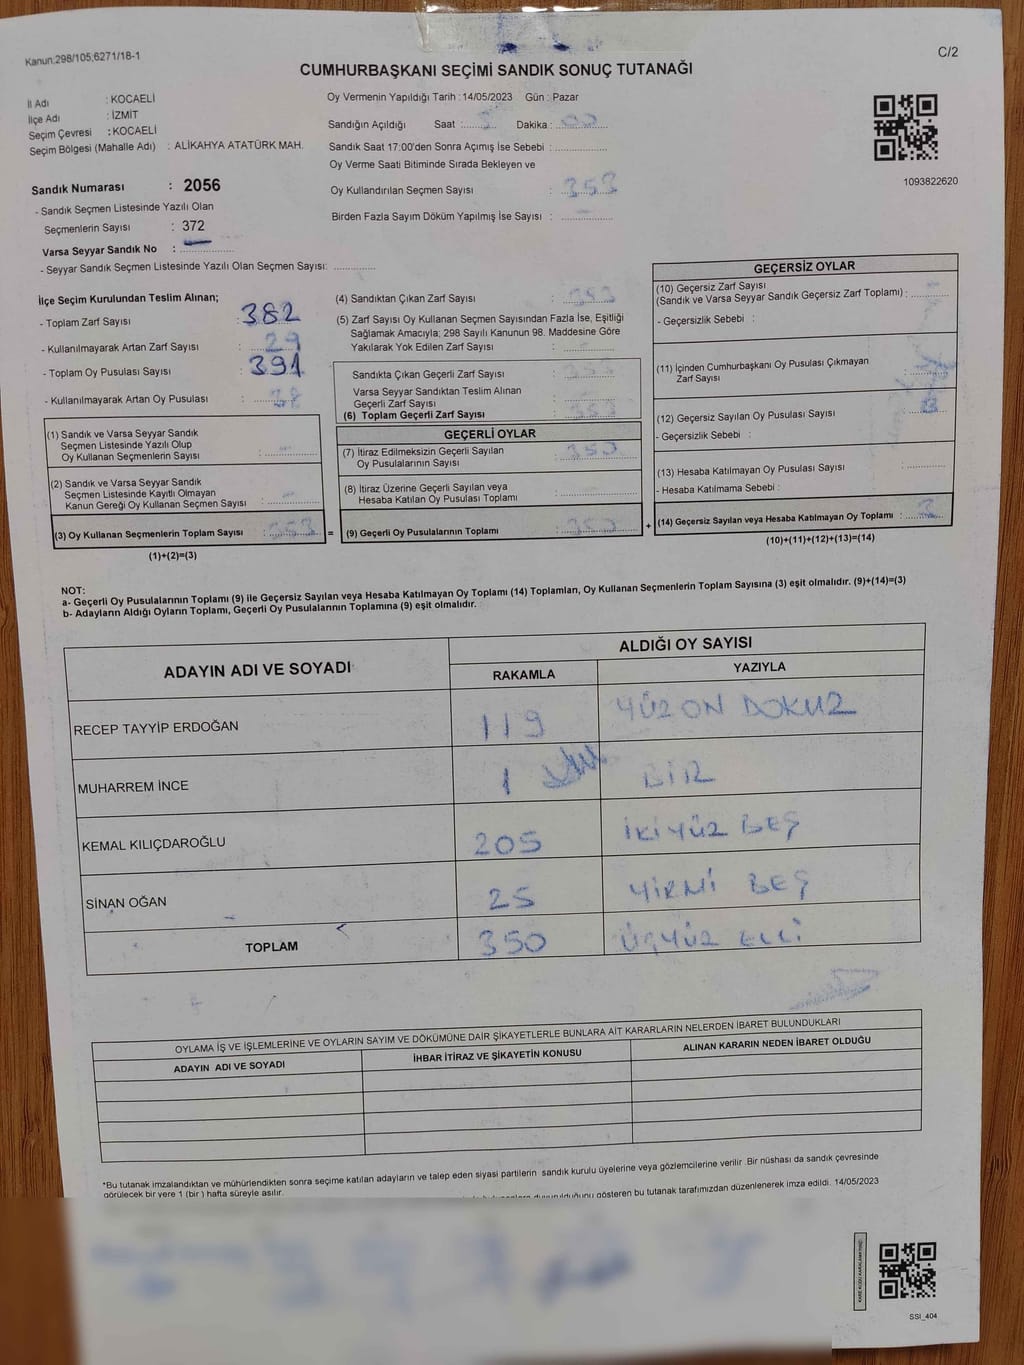 Kanun:298/105;6271/18-1
C/2
CUMHURBAŞKANI SEÇİMİ SANDIK SONUÇ TUTANAĞI
İl Adı : KOCAELİ
İlçe Adı : İZMİT
Seçim Çevresi : KOCAELİ
Seçim Bölgesi (Mahalle Adı) : ALİKAHYA ATATÜRK MAH.
Oy Vermenin Yapıldığı Tarih : 14/05/2023 Gün : Pazar
Sandığın Açıldığı Saat : Dakika : 00
Sandık Saat 17:00'den Sonra Açımış İse Sebebi :
Oy Verme Saati Bitiminde Sırada Bekleyen ve
Oy Kullandırılan Seçmen Sayısı : 353
Birden Fazla Sayım Döküm Yapılmış İse Sayısı : -
1093822620
Sandık Numarası : 2056
- Sandık Seçmen Listesinde Yazılı Olan
Seçmenlerin Sayısı : 372
Varsa Seyyar Sandık No :
- Seyyar Sandık Seçmen Listesinde Yazılı Olan Seçmen Sayısı:
İlçe Seçim Kurulundan Teslim Alınan;
- Toplam Zarf Sayısı : 382
- Kullanılmayarak Artan Zarf Sayısı : 29
- Toplam Oy Pusulası Sayısı : 391
- Kullanılmayarak Artan Oy Pusulası : 38
(1) Sandık ve Varsa Seyyar Sandık
Seçmen Listesinde Yazılı Olup
Oy Kullanan Seçmenlerin Sayısı :
(2) Sandık ve Varsa Seyyar Sandık
Seçmen Listesinde Kayıtlı Olmayan
Kanun Gereği Oy Kullanan Seçmen Sayısı : -
(3) Oy Kullanan Seçmenlerin Toplam Sayısı : 353
(1)+(2)=(3)
=
(4) Sandıktan Çıkan Zarf Sayısı : 353
(5) Zarf Sayısı Oy Kullanan Seçmen Sayısından Fazla İse, Eşitliği
Sağlamak Amacıyla; 298 Sayılı Kanunun 98. Maddesine Göre
Yakılarak Yok Edilen Zarf Sayısı : -
Sandıkta Çıkan Geçerli Zarf Sayısı : 353
Varsa Seyyar Sandıktan Teslim Alınan
Geçerli Zarf Sayısı :
(6) Toplam Geçerli Zarf Sayısı : 353
GEÇERLİ OYLAR
(7) İtiraz Edilmeksizin Geçerli Sayılan
Oy Pusulalarının Sayısı : 350
(8) İtiraz Üzerine Geçerli Sayılan veya
Hesaba Katılan Oy Pusulası Toplamı : -
(9) Geçerli Oy Pusulalarının Toplamı : 350
+
GEÇERSİZ OYLAR
(10) Geçersiz Zarf Sayısı
(Sandık ve Varsa Seyyar Sandık Geçersiz Zarf Toplamı) : -
- Geçersizlik Sebebi :
(11) İçinden Cumhurbaşkanı Oy Pusulası Çıkmayan
Zarf Sayısı :
(12) Geçersiz Sayılan Oy Pusulası Sayısı : 3
- Geçersizlik Sebebi :
(13) Hesaba Katılmayan Oy Pusulası Sayısı :
- Hesaba Katılmama Sebebi :
(14) Geçersiz Sayılan veya Hesaba Katılmayan Oy Toplamı : 3
(10)+(11)+(12)+(13)=(14)
NOT:
a- Geçerli Oy Pusulalarının Toplamı (9) ile Geçersiz Sayılan veya Hesaba Katılmayan Oy Toplamı (14) Toplamları, Oy Kullanan Seçmenlerin Toplam Sayısına (3) eşit olmalıdır. (9)+(14)=(3)
b- Adayların Aldığı Oyların Toplamı, Geçerli Oy Pusulalarının Toplamına (9) eşit olmalıdır.
ADAYIN ADI VE SOYADI
ALDIĞI OY SAYISI
RAKAMLA YAZIYLA
RECEP TAYYİP ERDOĞAN 119 YÜZ ON DOKUZ
MUHARREM İNCE 1 BİR
KEMAL KILIÇDAROĞLU 205 İKİYÜZ BEŞ
SİNAN OĞAN 25 YİRMİ BEŞ
TOPLAM 350 ÜÇYÜZ ELLİ
OYLAMA İŞ VE İŞLEMLERİNE VE OYLARIN SAYIM VE DÖKÜMÜNE DAİR ŞİKAYETLERLE BUNLARA AİT KARARLARIN NELERDEN İBARET BULUNDUKLARI
ADAYIN ADI VE SOYADI İHBAR İTİRAZ VE ŞİKAYETİN KONUSU ALINAN KARARIN NEDEN İBARET OLDUĞU
*Bu tutanak imzalandıktan ve mühürlendikten sonra seçime katılan adayların ve talep eden siyasi partilerin sandık kurulu üyelerine veya gözlemcilerine verilir. Bir nüshası da sandık çevresinde
görülecek bir yere 1 (bir ) hafta süreyle asılır.
gösteren bu tutanak tarafımızdan düzenlenerek imza edildi. 14/05/2023
SSI_404